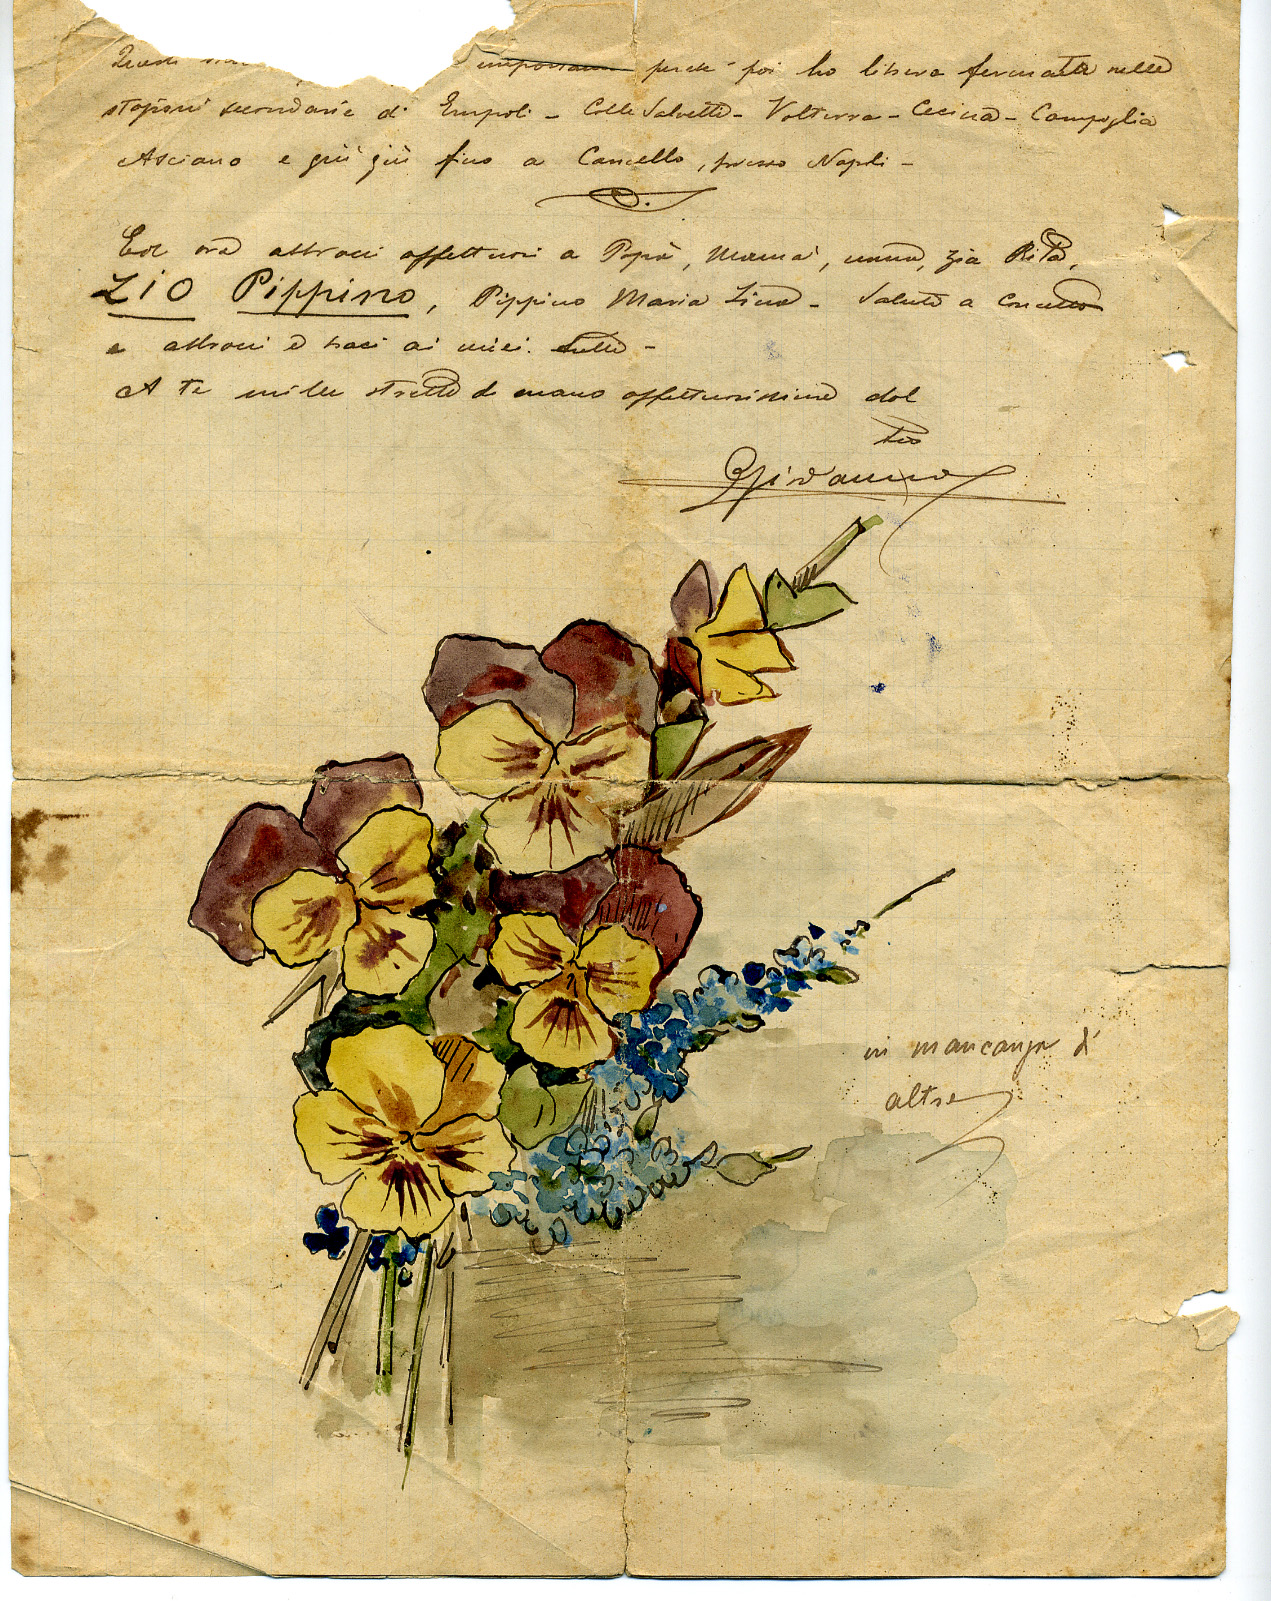 perché poi ho libera fermata nelle
stazioni secondarie di Empoli - Colle Salvetti - Volterra - Cecina - Campiglia
Asciano e giù giù fino a Cancello, presso Napoli -
Ed ora abbracci affettuosi a Papà, Mamà, nonna, zia Rita,
ZIO Pippino, Pippino Maria Lina - Saluti a
e abbracci e baci ai miei tutti -
A te mille strette di mano affettuosissime dal
tuo
Giovanni
in mancanza di
altre